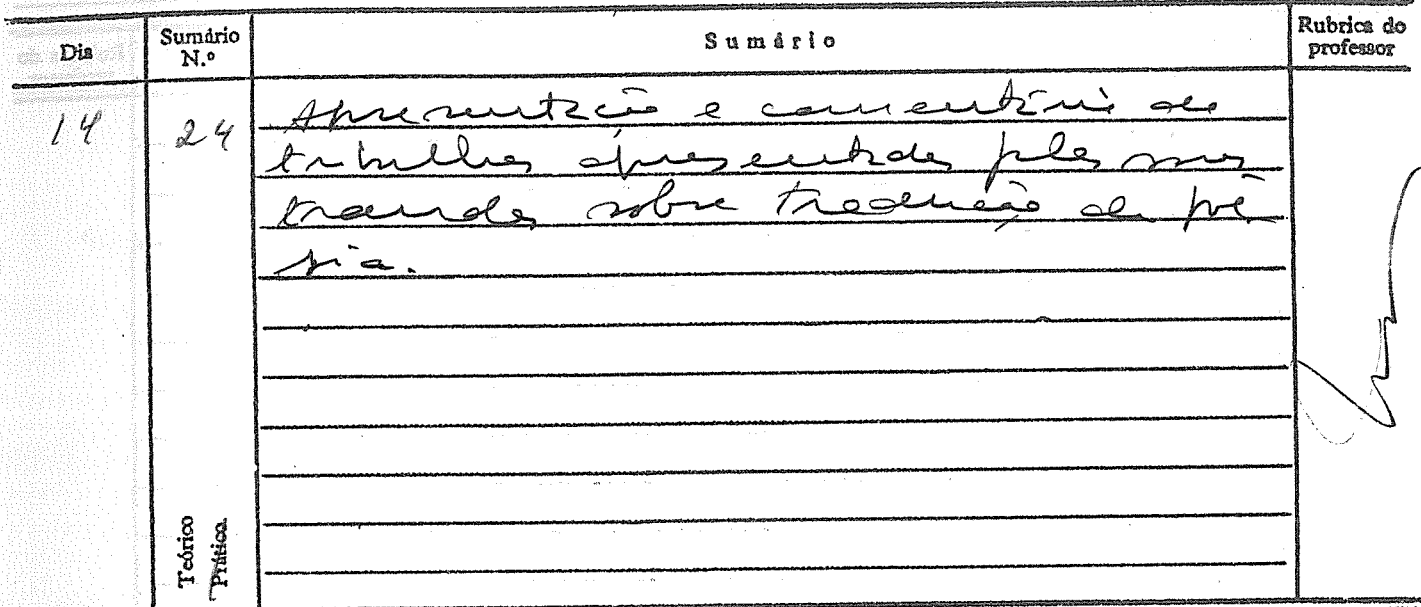 Dia
Sumário
N.º
Sumário
Rubrica do
professor
14
24
Apresentação e comentário de
trabalhos apresentados pelos mes
trandos sobre tradução de poe
sia.
Teórico
Prática.